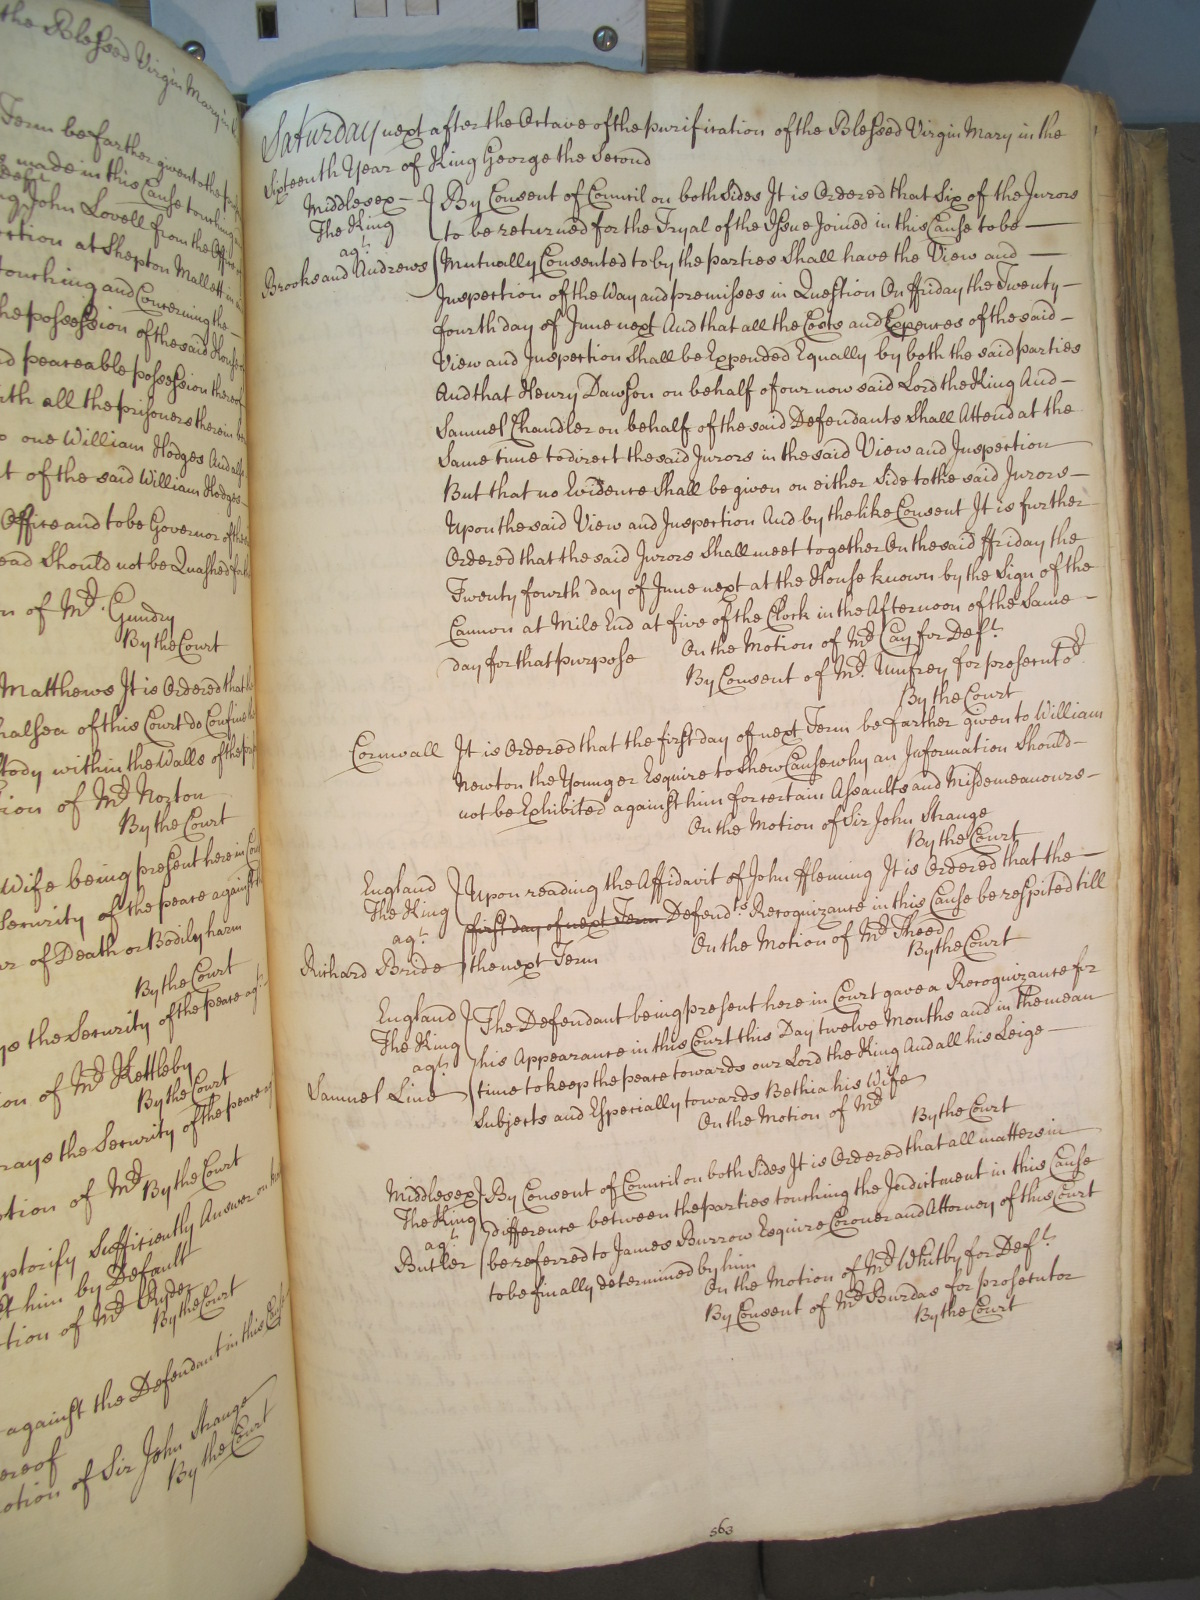 the Blessed Virgin Mary in
Term be farther given to the
made in this Cause touching
John Lovell from the Office
at Shepton Mallett in
touching and Concerning the
the possession of the said House
peaceable possession thereof
all the prisoners therein
one William Hodges And also
of the said William Hodges
Office and to be Governor of the
Should not be Quashed
of Mr. Gundry
By the Court
Matthews It is Ordered that
of this Court do Confine
within the Walls of the
of Mr. Norton
By the Court
Wife being present here in
Security of the peace against
of Death or Bodily harm
By the Court
the Security of the peace agt.
of Mr. Kettleby
By the Court
the Security of the peace
of Mr.
By the Court
Sufficiently Answer
him by Default
of Mr. Ryder
By the Court
against the Defendant in this
of Sir John Strange
By the Court
Saturday next after the Octave of the purification of the Blessed Virgin Mary in the
Sixteenth Year of King George the Second
Middlesex —
The King
agt.
Brooks and Andrews
By Consent of Council on both Sides It is Ordered that Six of the Jurors
to be returned for the Tryal of the Issue Joined in this Cause to be —
Mutually Consented to by the parties Shall have the View and —
Inspection of the Way and premisses in Question On ffriday the Twenty —
fourth day of June next And that all the Costs and Expences of the said —
View and Inspection Shall be Expended Equally by both the said parties
And that Henry Dawson on behalf of our now said Lord the King And —
Samuel Chandler on behalf of the said Defendants Shall Attend at the
Same time to direct the said Jurors in the said View and Inspection
But that no Evidence Shall be given on either Side to the said Jurors —
Upon the said View and Inspection And by the like Consent It is further
Ordered that the said Jurors Shall meet together On the said ffriday the
Twenty fourth day of June next at the House known by the Sign of the
Cannon at Mile End at five of the Clock in the Afternoon of the Same —
day for that purpose On the Motion of Mr. Cay for Deft.
By Consent of Mr. Umfrey for prosecutor
By the Court
Cornwall It is Ordered that the first day of next Term be farther given to William
Newton the Younger Esquire to shew Cause why an Information Should —
not be Exhibited against him for certain Assaults and Misdemeanours —
On the Motion of Sir John Strange
By the Court
England
The King
agt.
Richard Bride
Upon reading the Affidavit of John ffleming It is Ordered that the —
first day of next Term Defendts. Recognizance in this Cause be respited till
the next Term On the Motion of Mr. Theed
By the Court
England
The King
agt.
Samuel Line
The Defendant being present here in Court gave a Recognizance for
his Appearance in this Court this Day twelve Months and in the mean
time to keep the peace towards our Lord the King And all his Leige —
Subjects and Especially towards Bethia his Wife
On the Motion of Mr.
By the Court
Middlesex
The King
agt.
Butler
By Consent of Council on both Sides It is Ordered that all matters in
difference between the parties touching the Indictment in this Cause
be referred to James Burrow Esquire Coroner and Attorney of this Court
to be finally determined by him
On the Motion of Mr. Whitby for Deft.
By Consent of Mr. Burdas for prosecutor
By the Court
563